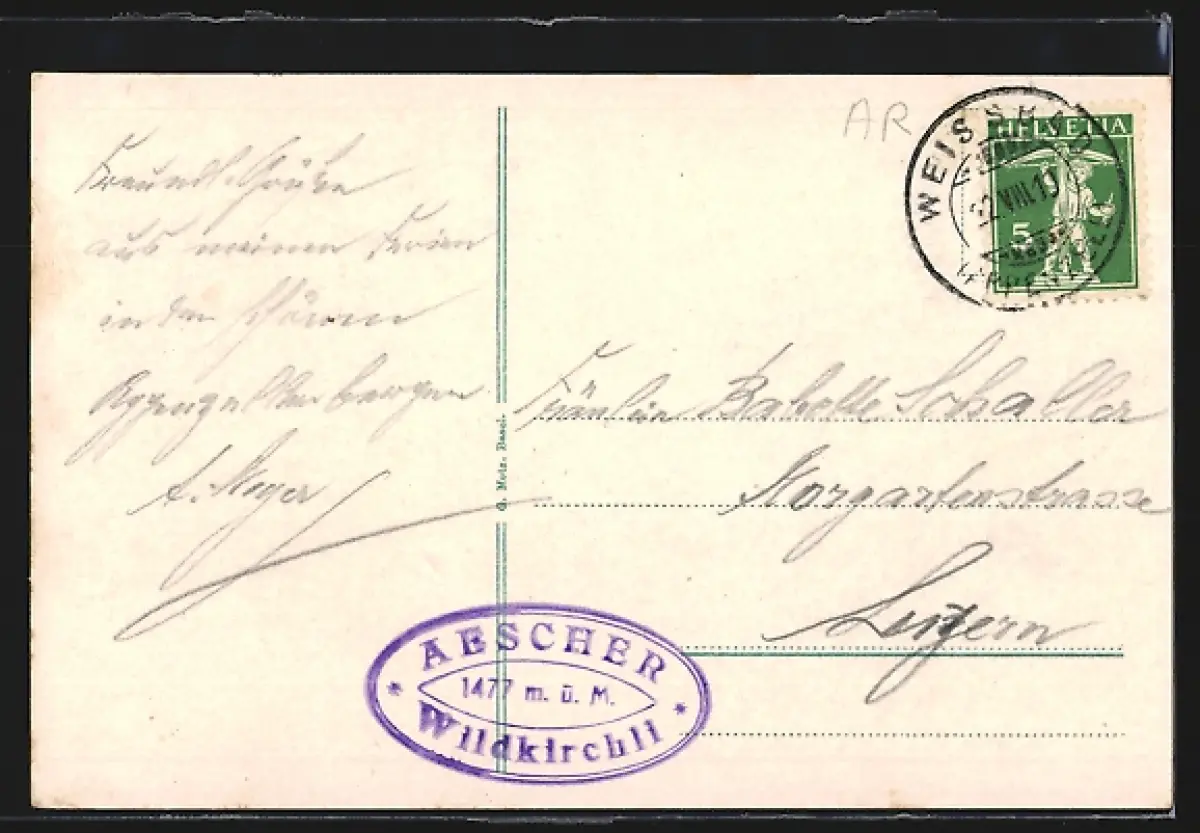 Freundl. Grüße
aus meinen Ferien
in den schönen
Appenzellerbergen
A. Meyer
AR
WEISSBAD
VIII.10
(APPENZELL)
HELVETIA
5
Fräulein Babette Schaller
Morgartenstrasse
Luzern
G. Metz, Basel
AESCHER
1477 m. ü. M.
Wildkirchli